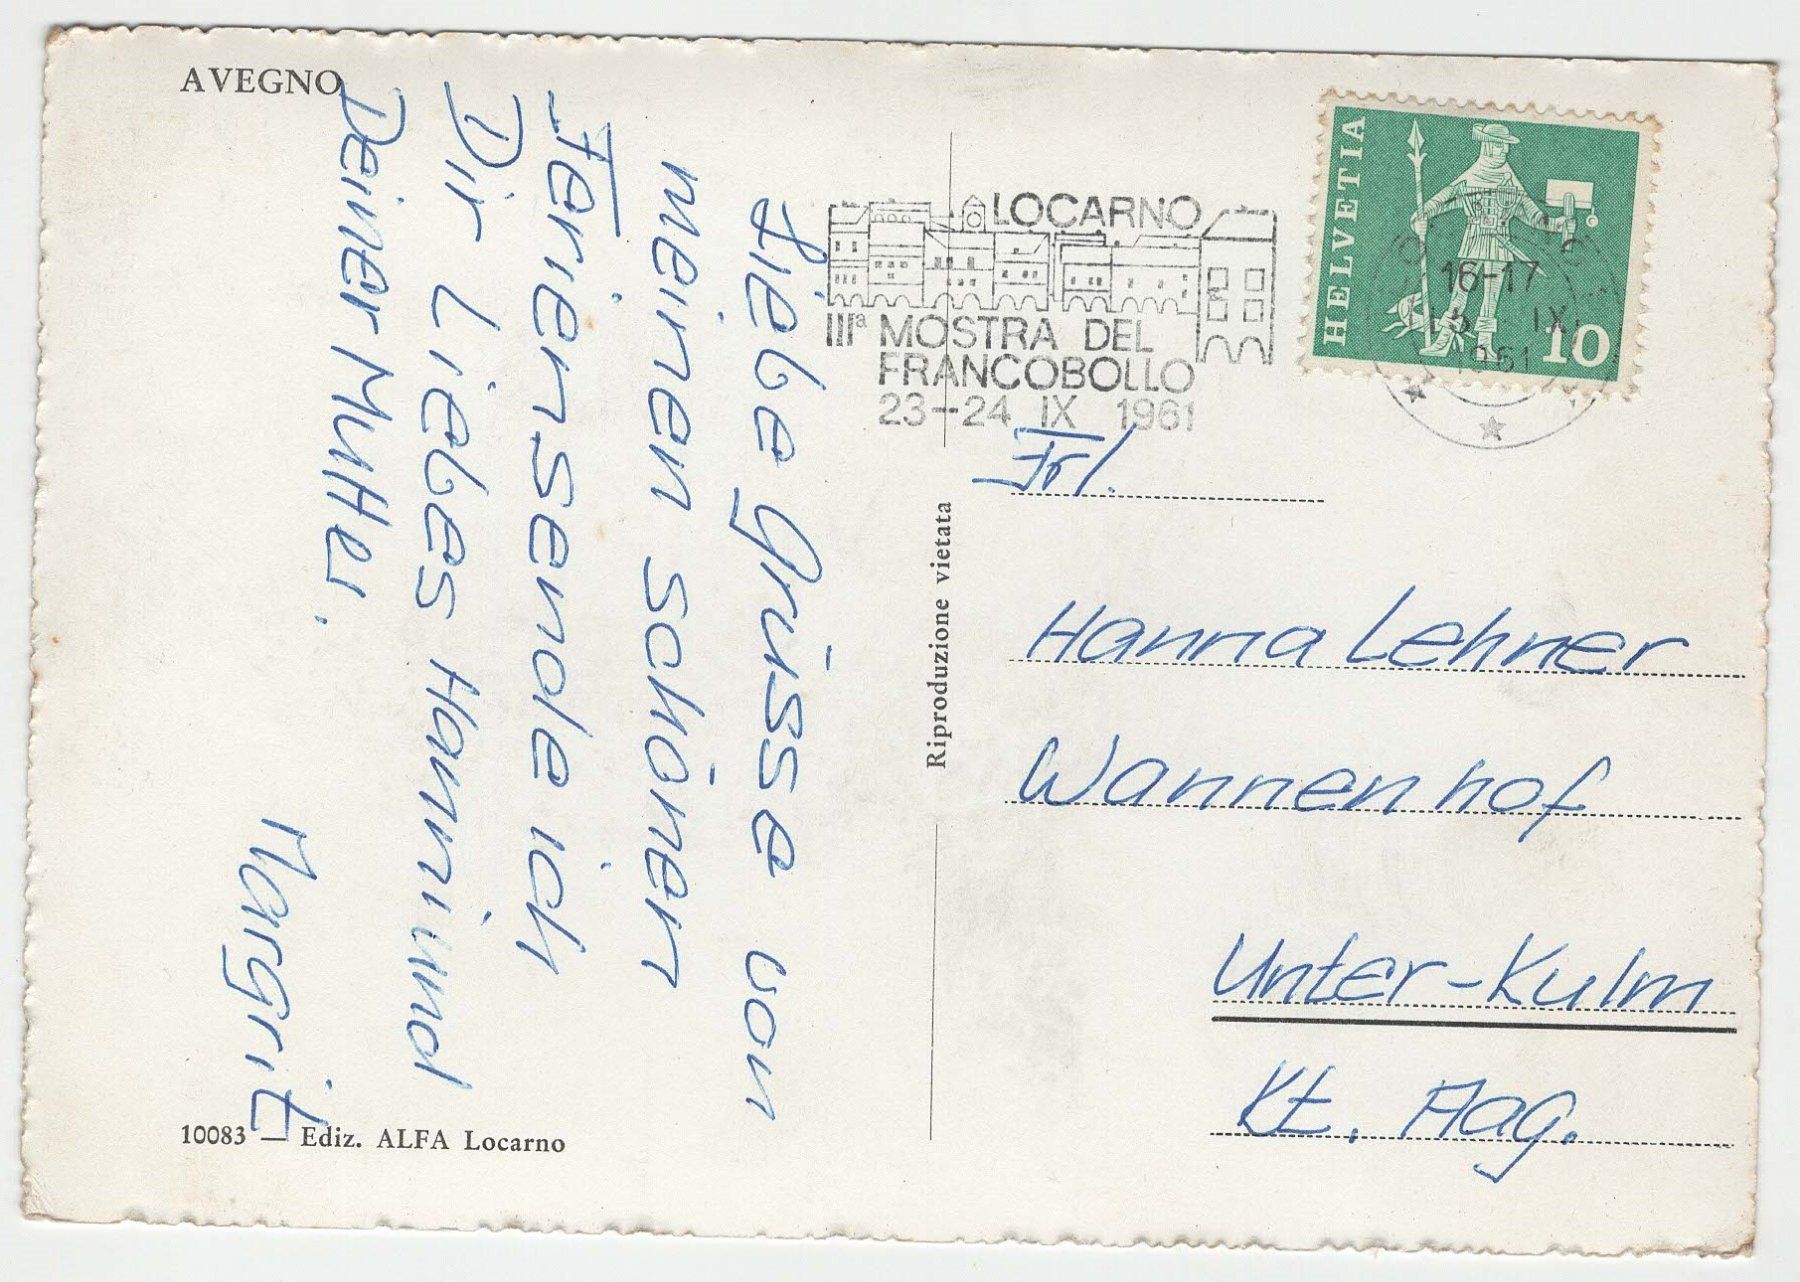 AVEGNO
Liebe Grüsse von
meinen schönen
Ferien sende ich
Dir Liebes Hanni und
Deiner Mutter.
Margrit
10083 — Ediz. ALFA Locarno
Riproduzione vietata
LOCARNO
IIIª MOSTRA DEL
FRANCOBOLLO
23-24 IX 1961
HELVETIA
10
16-17
IX
1961
Frl.
Hanna Lehner
Wannenhof
Unter-Kulm
Kt. Aag.